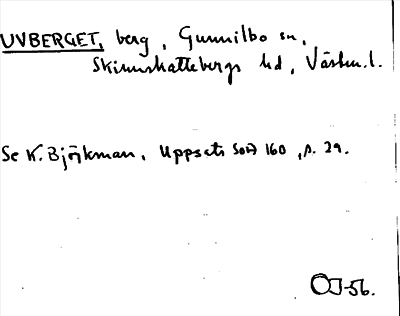 UVBERGET, berg, Gunnilbo sn,
Skinnskattebergs hd, Västm.l.
Se K. Björkman, Uppsats SOÄ 160, s. 29.
OJ-56.